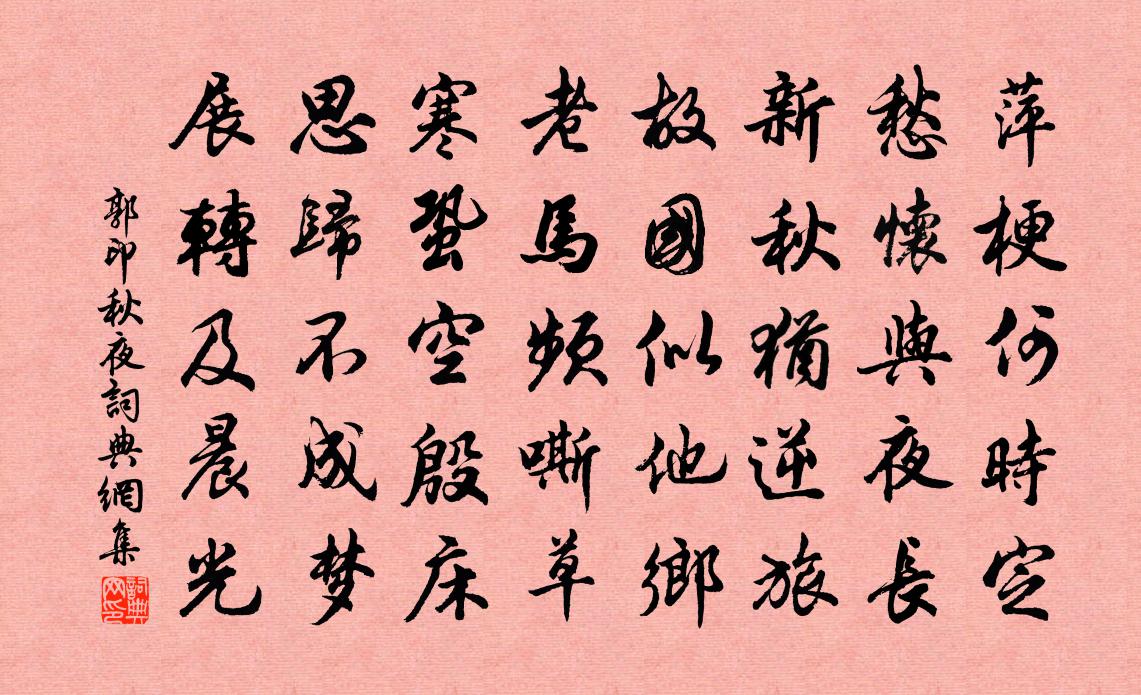 萍梗何時定
愁懷與夜長
新秋猶逆旅
故國似他鄉
老馬頻嘶草
寒蛩空殷床
思歸不成梦
展轉及晨光
郭印秋夜詞典網集
詞典網印